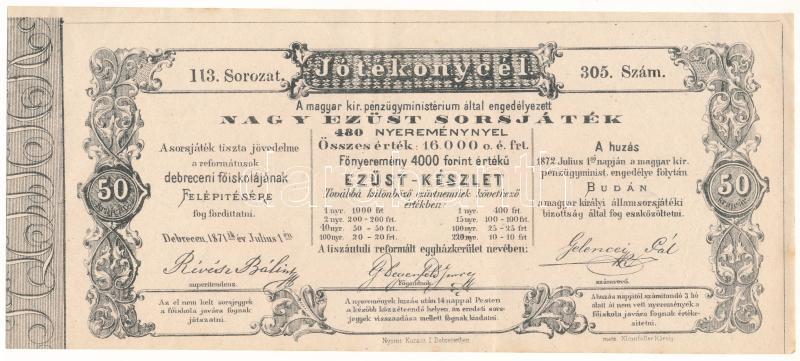 113. Sorozat.
Jótékonycél
305. Szám.
A magyar kir. pénzügyministerium által engedélyezett
NAGY EZÜST SORSJÁTÉK
480 NYEREMÉNYNYEL
Összes érték: 16.000 o. é. frt.
Főnyeremény 4000 forint értékű
EZÜST-KÉSZLET
Továbbá különböző ezüstneműek következő
értékben:
1 nyr. 1000 frt
2 nyr. 200-200 frt.
40 nyr. 50 - 50 frt
100 nyr. 20 - 20 frt.
1 nyr. - 400 frt.
15 nyr. 100-100 frt.
100 nyr. 25-25 frt
10-10 frt
A tiszántuli reformált egyházkerület nevében:
A sorsjáték tiszta jövedelme
a reformátusok
debreczeni főiskolájának
FELÉPITÉSÉRE
fog fordittatni.
Debreczen, 1871 ik év Julius 1 én
Révész Bálint
superintendens.
Főgondnok.
A huzás
1872 Julius 1ső napján a magyar kir.
pénzügyminist. engedélye folytán
BUDÁN
a magyar királyi államsorsjátéki
bizottság által fog eszközöltetni.
Gelencei Pál
számvevő.
50
krajczár
50
krajczár
Az el nem kelt sorsjegyek
a főiskola javára fognak
játszatni.
A nyeremények huzás után 14 nappal Pesten
a később közzéteendő helyen, az eredeti sors-
jegyek visszaadása mellett fognak kiadatni.
A huzás napjától számitandó 3 hó
alatt át nem vett nyeremények a
főiskola javára fognak értéke-
sitetni.
Nyomt. Kutasi I. Debreczetben
metsz. Klamfeller Károly.